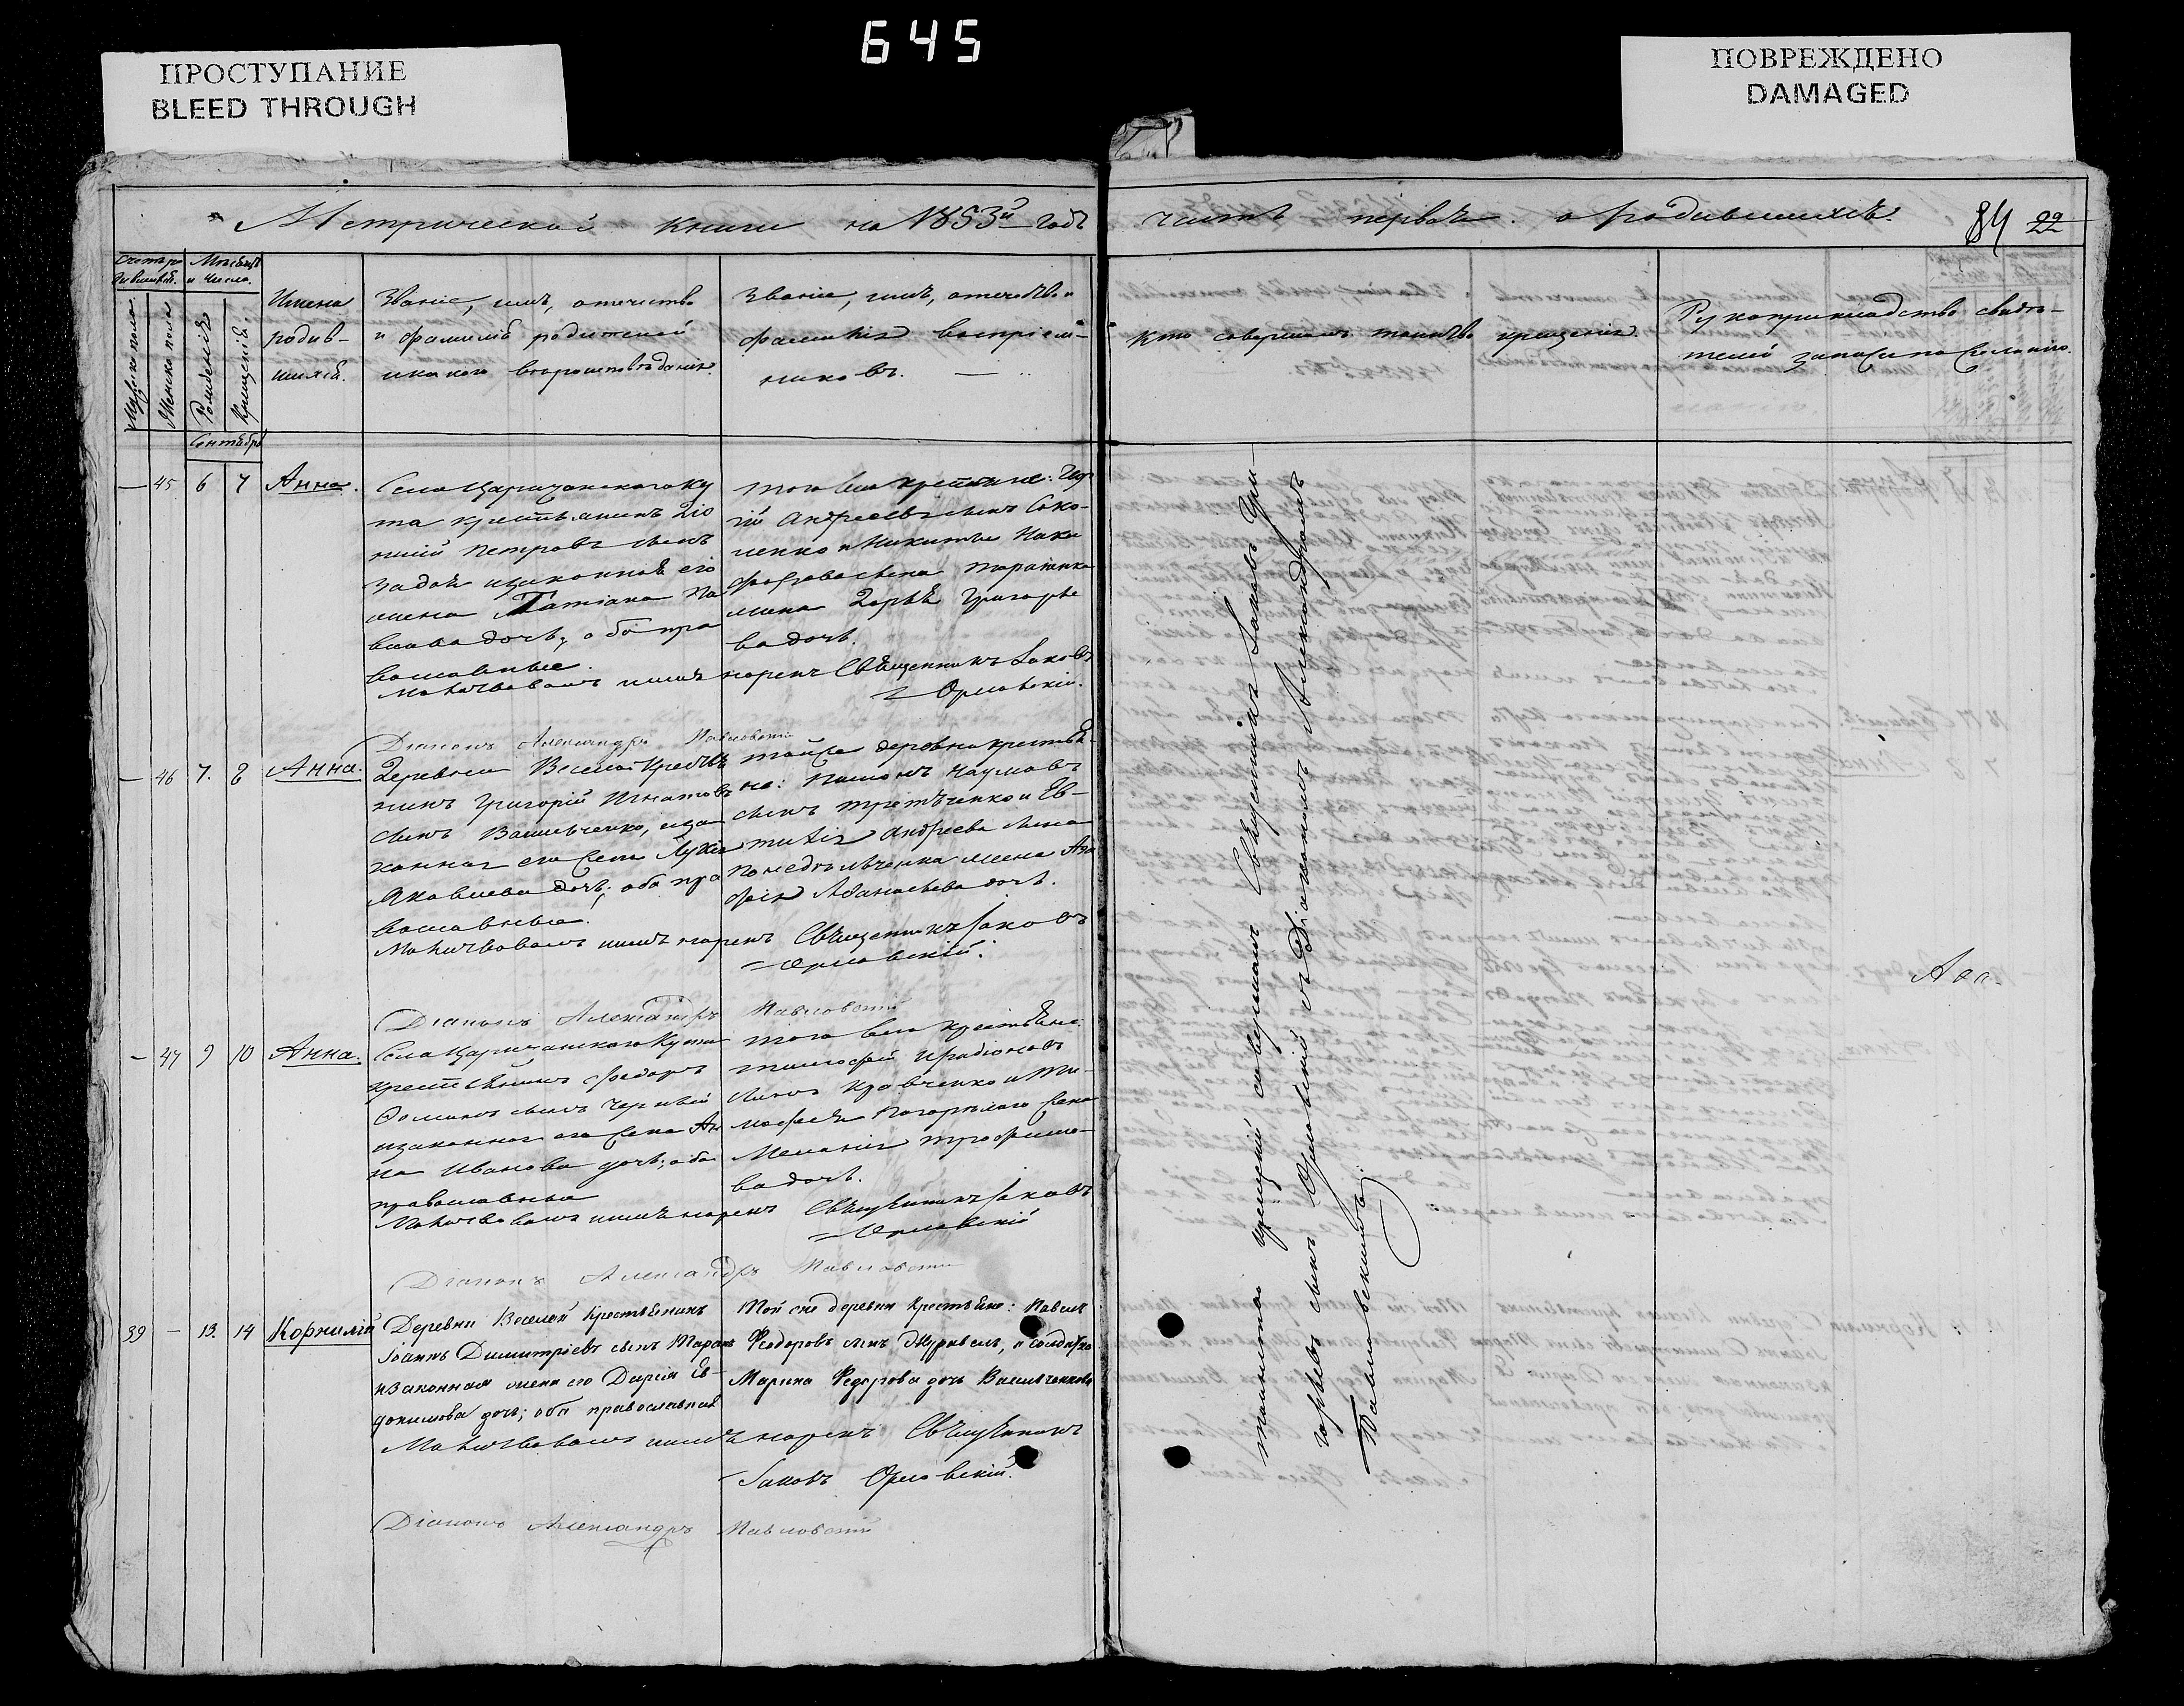 645
ПРОСТУПАНИЕ
BLEED THROUGH
ПОВРЕЖДЕНО
DAMAGED
Метрической книги на 1853й годъ
часть первая о родившихся.
84 22
Мѣсяцъ
и число.
Мужеска пола
Женска пола
Рожденія
Крещенія.
Имена
родив-
шихся.
Званіе, имя, отечество
и фамилія родителей
и какого вѣроисповѣданія.
Званіе, имя, отечество и
фамилія воспріем-
никовъ.
Кто совершалъ таинство крещенія.
Рукоприкладство свидѣ-
телей записи по желанію.
Сентябрь
— 45 6 7 Анна.
Села Царичанскаго Ку
та крестьянинъ Діо
нисій Петровъ сынъ
Задоя и законная его
жена Татіана Па
влова дочь; оба пра
вославные.
того села крестьяне:
Андреевъ сынъ Соко-
ленко и Никиты Ники
форова сына
жена Григорье
ва дочь.
Молитвовалъ имя нарекъ Священникъ Іаковъ
Орловскій.
Діаконъ Александръ Павловскій
— 46 7. 8 Анна.
Деревни Веселой крестья
нинъ Григорій Игнатовъ
сынъ Васильченко, и за
конная его жена Лукія
Яковлева дочь; оба пра
вославныя.
тойже деревни крестья-
не: Наумовъ
сынъ Третьченко и Ев-
тихія Андреева сына
Понедѣльченка жена Ага
фія Афанасьева дочь.
Молитвовалъ имя нарекъ Священникъ Іаковъ
Орловскій.
Діаконъ Александръ Павловскій
— 47 9 10 Анна.
Села Царичанскаго Кута
крестьянинъ Федоръ
Фоминъ сынъ Черный
и законная его жена Ан
на Иванова дочь; оба
православныя
того села крестьяне:
Тимофей Иродіоновъ
сынъ Кравченко и Ти-
мофея Погорѣлаго жена
Меланія Трофимо-
ва дочь.
Молитвовалъ имя нарекъ Священникъ Іаковъ
Орловскій
Діаконъ Александръ Павловскій
39 — 13. 14 Корнилій
Деревни Веселой крестьянинъ
Іоаннъ Димитріевъ сынъ Таранъ
и законная жена его Дарія Ев-
докимова дочь; оба православныя
Той же деревни крестьяне: Павелъ
Феодоровъ сынъ Журавель, и солдатка
Марина Федорова дочь Васильченкова
Молитвовалъ имя нарекъ Священникъ
Іаковъ Орловскій.
Діаконъ Александръ Павловскій
таинство крещенія совершалъ Священникъ Іаковъ Гри-
горьевъ сынъ Орловскій съ Діакономъ Александромъ
Павловскимъ.